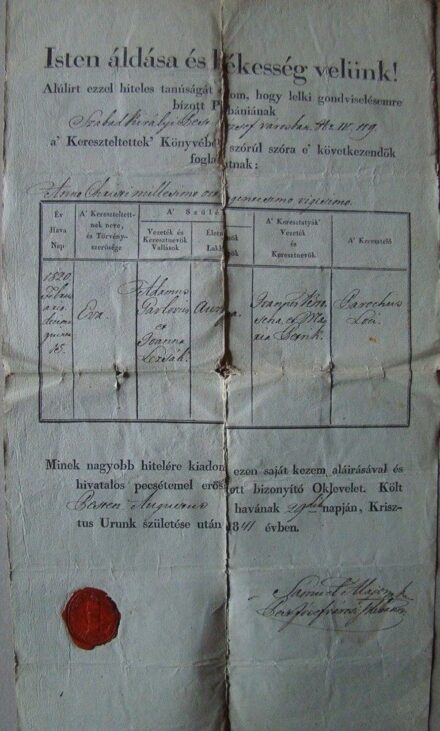 Isten áldása és békesség velünk!
Alúlirt ezzel hiteles tanúságát adom, hogy lelki gondviselésemre
bízott Plébániának
Szabad Királyi Pest József városban
a' Kereszteltettek' Könyvében szórúl szóra e' következendők
foglaltatnak:
Anno Christi millesimo octingentesimo vigesimo.
Év Hava Nap
A' Kereszteltettnek neve, és Törvényszerűsége
A' Szülék
Vezeték és Keresztnevök Vallások
A' Keresztatyák' Vezeték és Keresztnevök
A' Keresztelő
1820
Februario
15.
Eva.
Adamus
Pavlovits
et
Joanna
Parochus
Loci.
Minek nagyobb hitelére kiadom ezen saját kezem aláirásával és
hivatalos pecsétemel erősitett bizonyitó Oklevelet. Költ
Pesten Augusztus havának napján, Krisz-
tus Urunk születése után 1841 évben.
Samuel